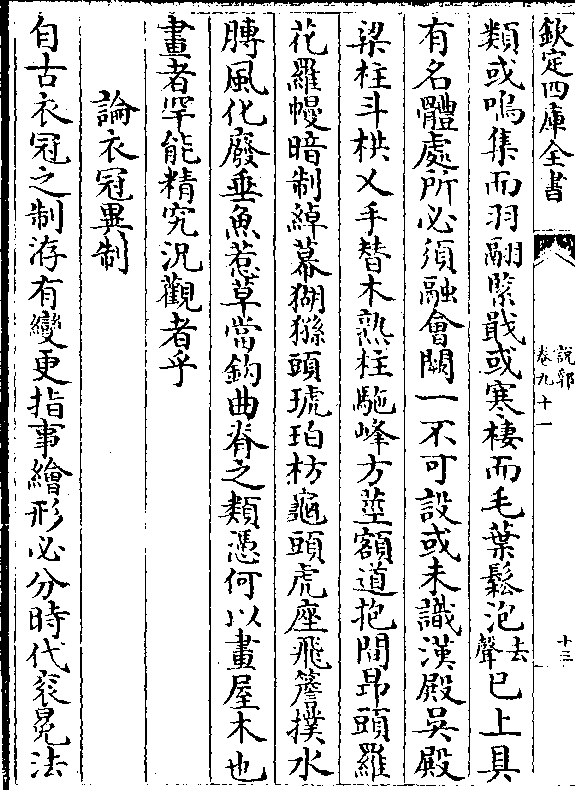 欽定四庫全書
說郛
卷九十一
十三
類或鳴集而羽翮緊戢或寒棲而毛葉鬆泡去聲已上具
有名體處所必須融會闕一不可設或未識漢殿吳殿
梁柱斗栱乂手替木熟柱駞峰方莖額道抱間昂頭羅
花羅幔暗制綽幕猢猻頭琥珀枋龜頭虎座飛簷撲水
膊風化廢垂魚惹草當鈎曲脊之類憑何以畫屋木也
畫者罕能精究況觀者乎
論衣冠異制
自古衣冠之制洊有變更指事繪形必分時代衮冕法